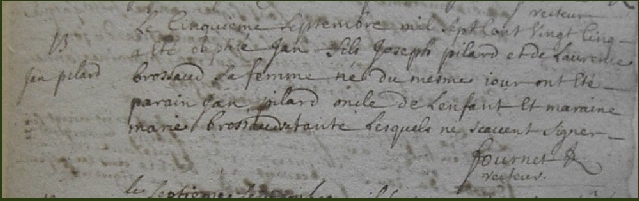 recteur
Le Cinquième septembre mil sept cent vingt Cinq
B
a été baptisé Jan fils Joseph pilard et de Laurence
Jan pilard
brossaud sa femme né du mesme iour ont Eté
parain Jan pilard oncle de Lenfant Et maraine
marie brossaud tante Lesquels ne scavent signer
Journet
recteur.